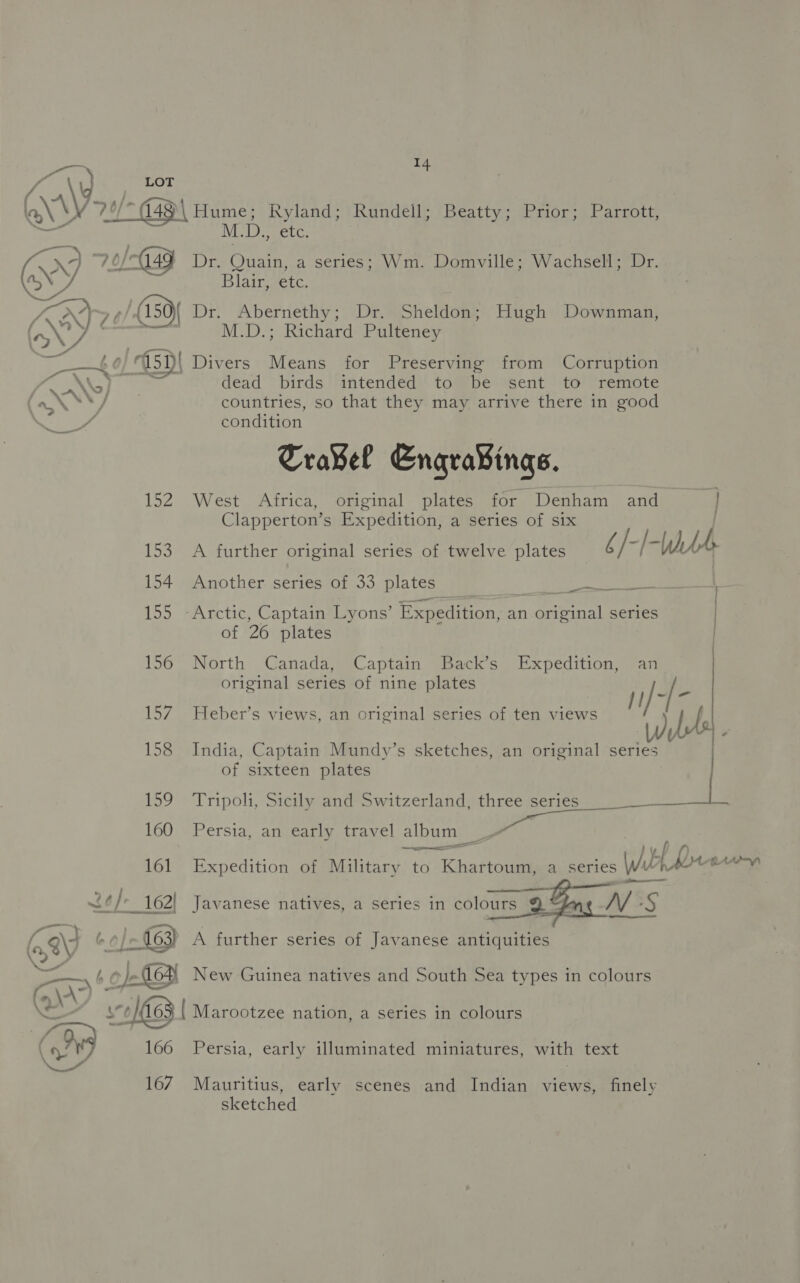 14
LOT
148 Hume; Ryland; Rundell; Beatty; Prior; Parrott,
M.D., etc.
149 Dr. Quain, a series; Wm. Domville; Wachsell; Dr.
Blair, etc.
150 Dr. Abernethy; Dr. Sheldon; Hugh Downman,
M.D.; Richard Pulteney
151 Divers Means for Preserving from Corruption
dead birds intended to be sent to remote
countries, so that they may arrive there in good
condition
Travel Engravings.
152 West Africa, original plates for Denham and
Clapperton's Expedition, a series of six
153 A further original series of twelve plates 6/-/-
154 Another series of 33 plates
155 Arctic, Captain Lyons' Expedition, an original series
of 26 plates
156 North Canada, Captain Back's Expedition, an
original series of nine plates
11/-/-
157 Heber's views, an original series of ten views
158 India, Captain Mundy's sketches, an original series
of sixteen plates
159 Tripoli, Sicily and Switzerland, three series
160 Persia, an early travel album
161 Expedition of Military to Khartoum, a series Withdrawn
162 Javanese natives, a series in colours
163 A further series of Javanese antiquities
164 New Guinea natives and South Sea types in colours
165 Marootzee nation, a series in colours
166 Persia, early illuminated miniatures, with text
167 Mauritius, early scenes and Indian views, finely
sketched